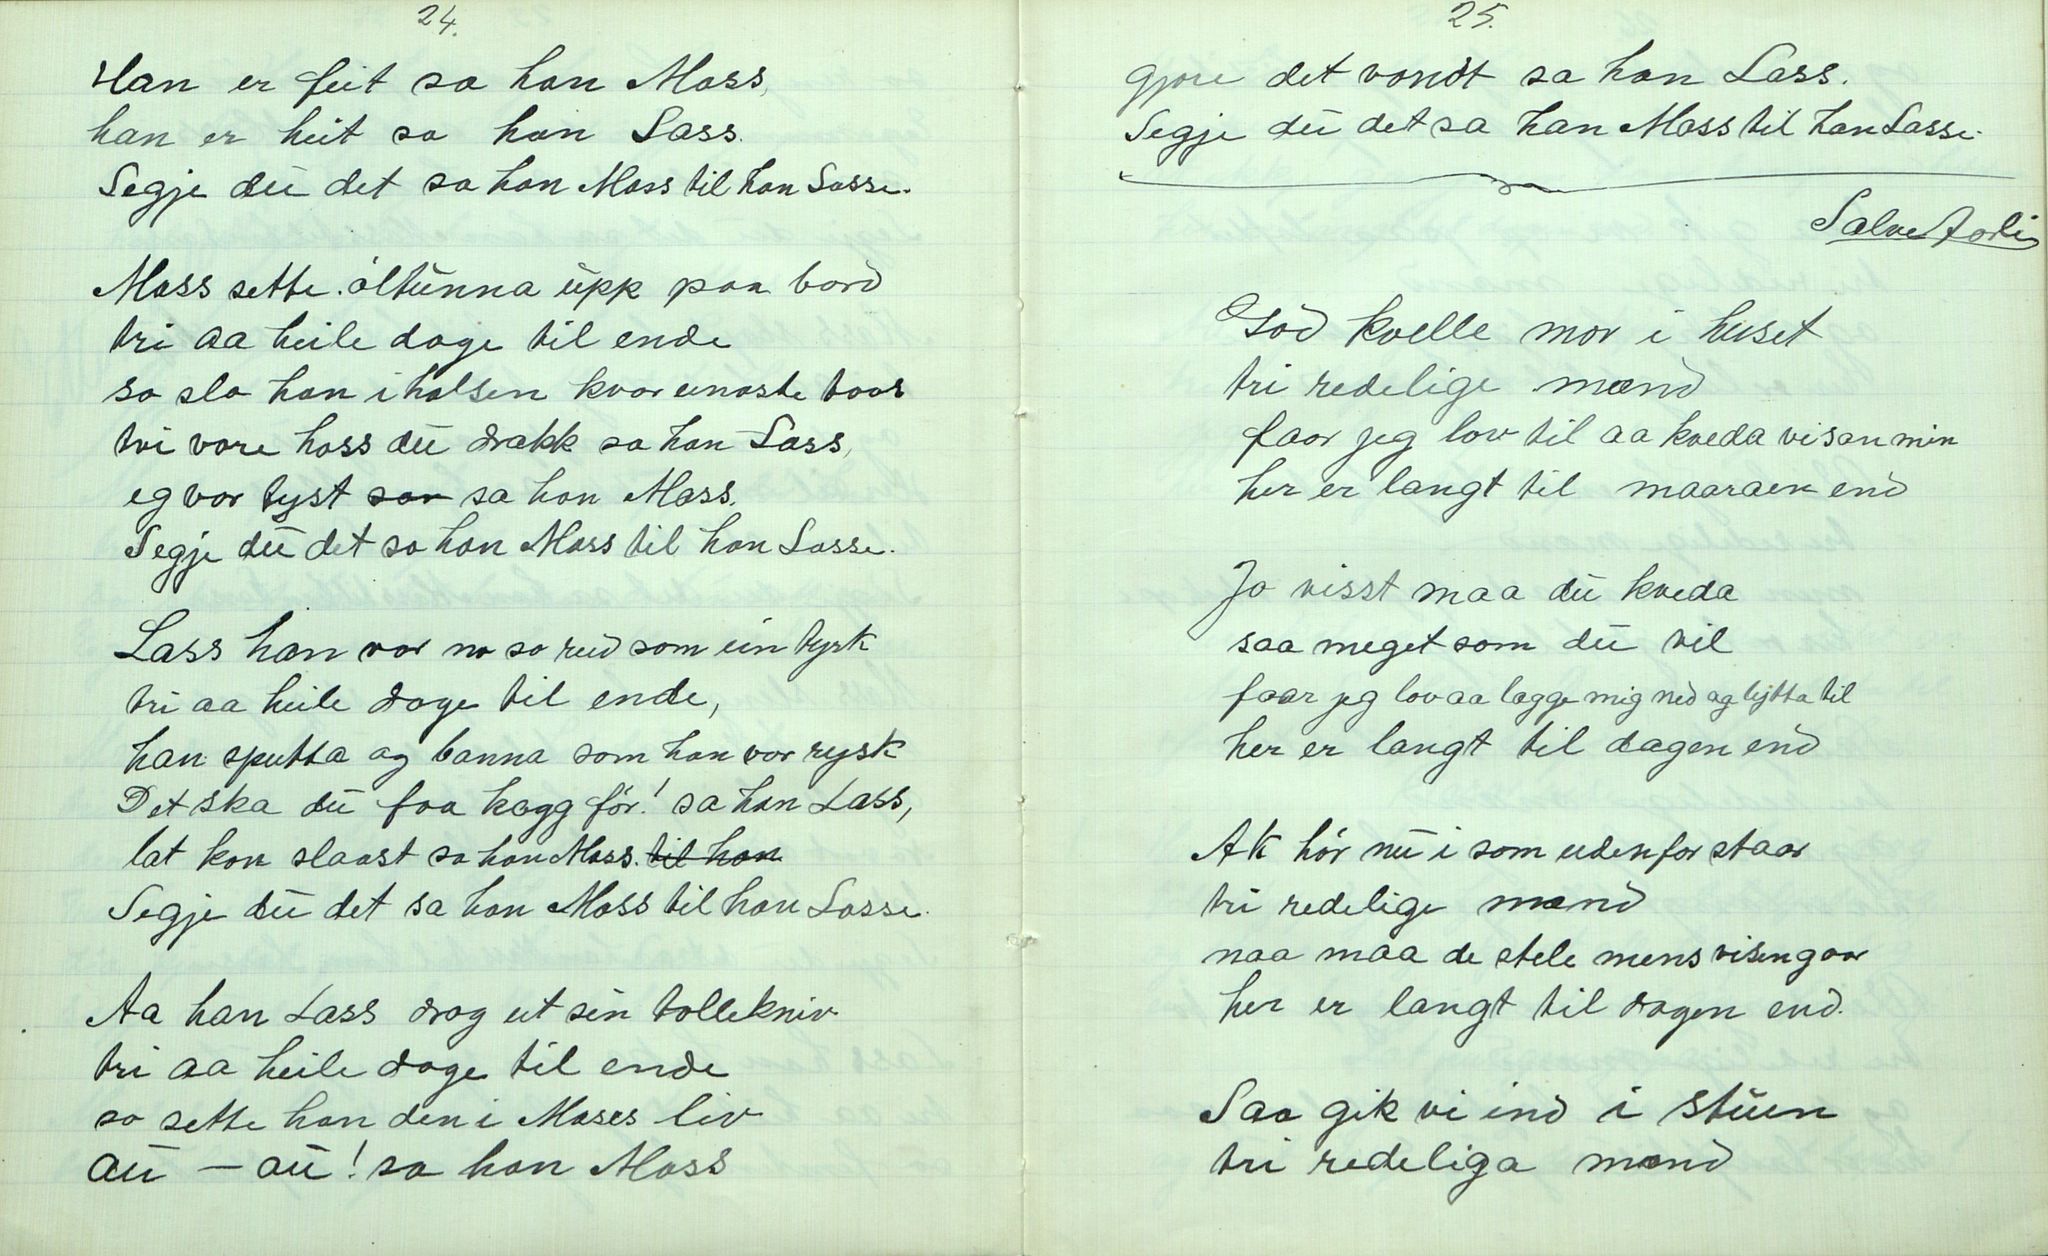 24.
Han er feit sa han Mass,
han er heit sa han Lass.
Segje du det sa han Mass til han Lasse.
Mass sette öltunna upp paa bord
tri aa heile dage til ende
so slo han i halsen kvar einaste taar
tvi vore hass du drakk sa han Lass,
eg var tyst sa han Mass.
Segje du det sa han Mass til han Lasse.
Lass han var no so reid som ein tyrk
tri aa heile dage til ende,
han sputta og banna som han var rysk
Det ska du faa kagg för! sa han Lass,
lat kon slaast sa han Mass. til han
Segje du det sa han Mass til han Lasse.
Aa han Lass drog ut sin tollekniv
tri aa heile dage til ende
so sette han den i Mases liv
au – au! sa han Mass
25.
gjore det vondt sa han Lass.
Segje du det sa han Mass til han Lasse.
Salve Aarli
God kvelle mor i huset
tri redelige mænd
faar jeg lov til aa kveda visan min
her er langt til maaraen end
Jo visst maa du kveda
saa meget som du vil
faar jeg lov aa lægge mig ned og lytta til
her er langt til dagen end
Ak hör nu i som udenfor staar
tri redelige mænd
naa maa de stele mens visen gaar
her er langt til dagen end.
Saa gik vi ind i stuen
tri redeliga mænd